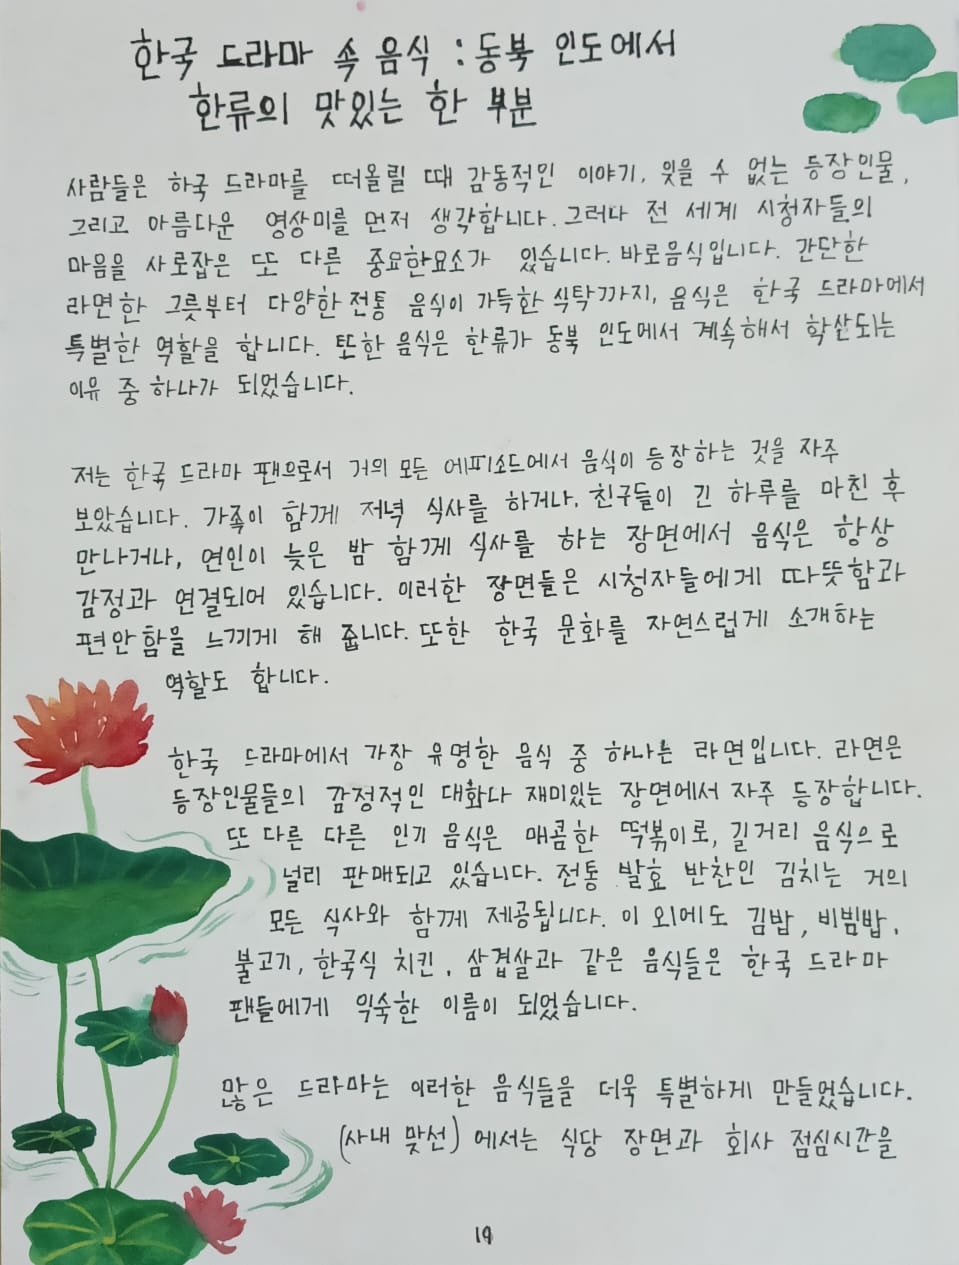 한국 드라마 속 음식 : 동북 인도에서
한류의 맛있는 한 부분
사람들은 한국 드라마를 떠올릴 때 감동적인 이야기, 잊을 수 없는 등장인물,
그리고 아름다운 영상미를 먼저 생각합니다. 그러나 전 세계 시청자들의
마음을 사로잡은 또 다른 중요한요소가 있습니다. 바로음식입니다. 간단한
라면한 그릇부터 다양한 전통 음식이 가득한 식탁까지, 음식은 한국 드라마에서
특별한 역할을 합니다. 또한 음식은 한류가 동북 인도에서 계속해서 확산되는
이유 중 하나가 되었습니다.
저는 한국 드라마 팬으로서 거의 모든 에피소드에서 음식이 등장하는 것을 자주
보았습니다. 가족이 함께 저녁 식사를 하거나, 친구들이 긴 하루를 마친 후
만나거나, 연인이 늦은 밤 함께 식사를 하는 장면에서 음식은 항상
감정과 연결되어 있습니다. 이러한 장면들은 시청자들에게 따뜻함과
편안함을 느끼게 해 줍니다. 또한 한국 문화를 자연스럽게 소개하는
역할도 합니다.
한국 드라마에서 가장 유명한 음식 중 하나는 라면입니다. 라면은
등장인물들의 감정적인 대화나 재미있는 장면에서 자주 등장합니다.
또 다른 다른 인기 음식은 매콤한 떡볶이로, 길거리 음식으로
널리 판매되고 있습니다. 전통 발효 반찬인 김치는 거의
모든 식사와 함께 제공됩니다. 이 외에도 김밥, 비빔밥,
불고기, 한국식 치킨, 삼겹살과 같은 음식들은 한국 드라마
팬들에게 익숙한 이름이 되었습니다.
많은 드라마는 이러한 음식들을 더욱 특별하게 만들었습니다.
(사내 맞선) 에서는 식당 장면과 회사 점심시간을
19